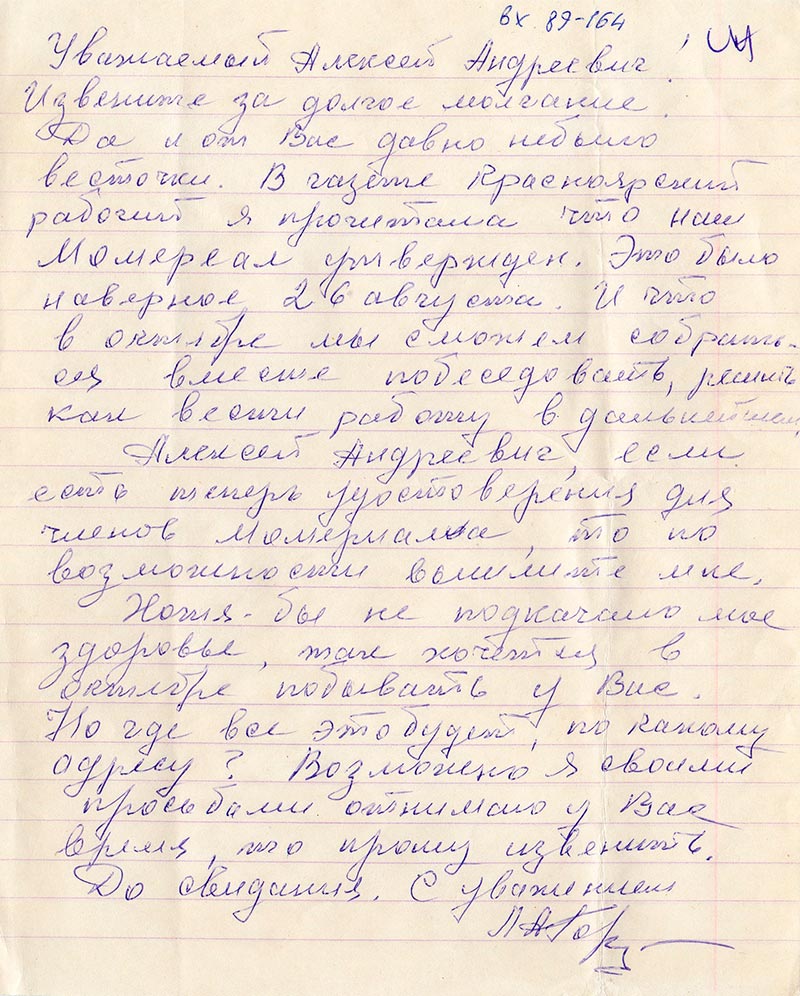 вх. 89-164
Уважаемый Алексей Андреевич!
Извените за долгое молчание.
Да и от Вас давно небыло
весточки. В газете Красноярский
рабочий я прочитала что наш
Момереал утвержден. Это было
наверное 26 августа. И что
в октябре мы сможем собрать-
ся вместе побеседовать, решить
как вести работу в дальнейшем.
Алексей Андреевич, если
есть теперь удостоверения для
членов Момериала, то по
возможности вышлите мне.
Хотя-бы не подкачало мое
здоровье, так хочется в
октябре побывать у Вас.
Но где все этобудет, по какому
адресу? Возможно я своими
просьбами отнимаю у Вас
время, то прошу извенить.
До свидания. С уважением